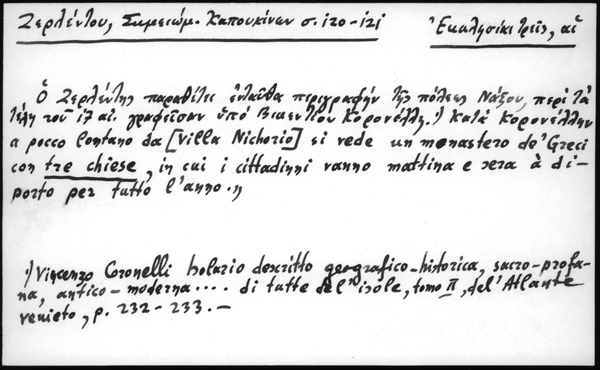 Ζερλέντου, Σημειώμ. Καπουκίνων σ. 120-121
Ἐκκλησίαι τρεῖς, αἱ
Ὁ Ζερλέντης παραθέτει ἐνταῦθα περιγραφήν τῆς πόλεως Νάξου, περί τά
τέλη τοῦ 17 αἰ. γραφεῖσαν ὑπό Βικεντίου Κορονέλλη.¹) Κατά Κορονέλλην
a pocco lontano da [Villa Nichorio] si vede un monastero de' Greci
con tre chiese, in cui i cittadinni vanno mattina e sera à di-
porto per tutto l'anno.»
¹) Vincenzo Coronelli Isolario descritto geografico-historica, sacro-profa-
na, antico-moderna .... di tutte del' isole, tomo II, del' Atlante
veneto, p. 232-233.—